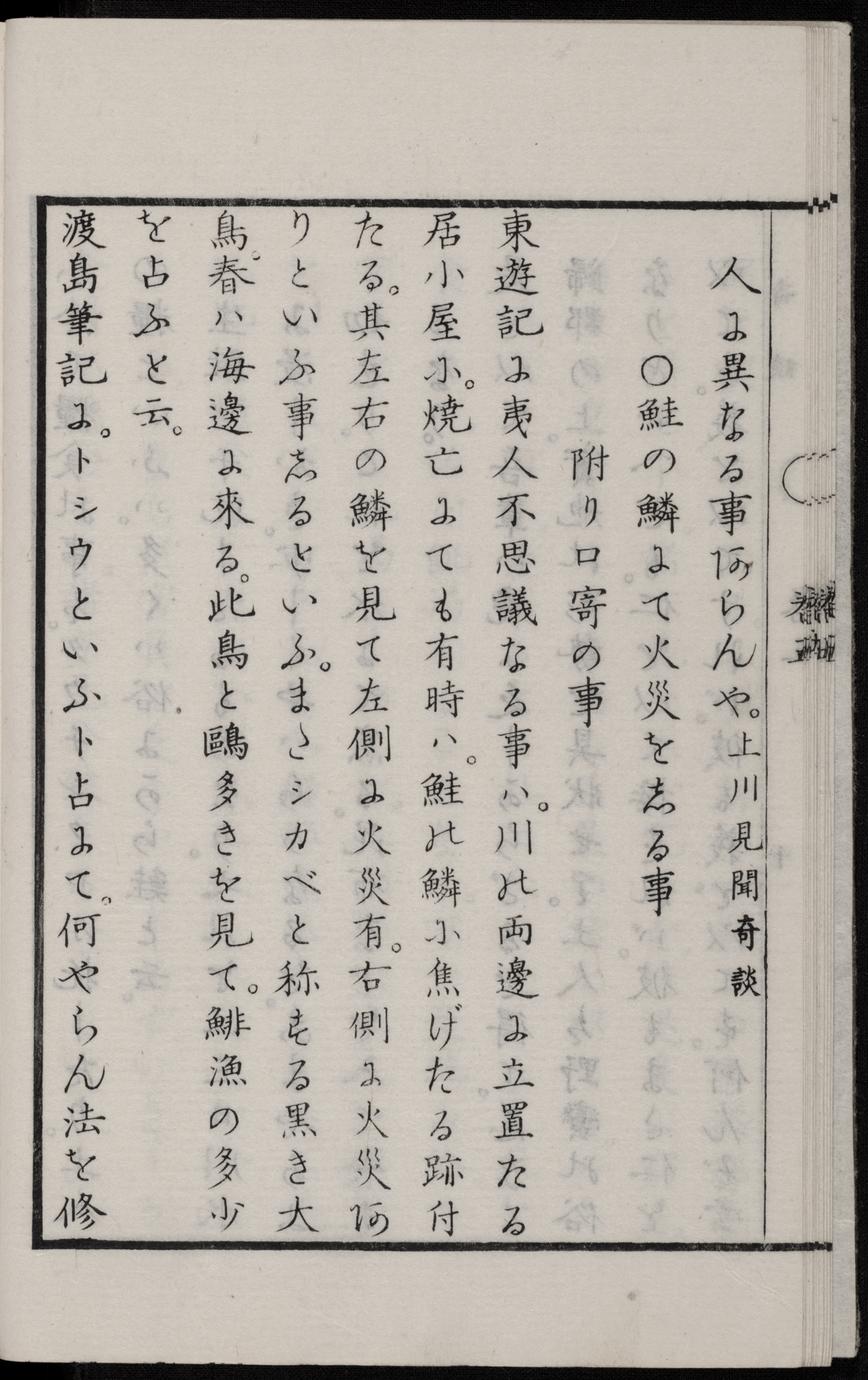 人に異なる事阿らんや。上川見聞奇談
〇鮭の鱗にて火災を志る事
附り口寄の事
東遊記に夷人不思議なる事ハ。川の両邊に立置たる
居小屋に。焼亡にても有時ハ。鮭の鱗に焦げたる跡付
たる。其左右の鱗を見て左側に火災有。右側に火災阿
りといふ事志るといふ。またシカベと称する黒き大
鳥。春ハ海邊に來る。此鳥と鷗多きを見て。鯡漁の多少
を占ふと云。
渡島筆記に。トシウといふト占にて。何やらん法を修